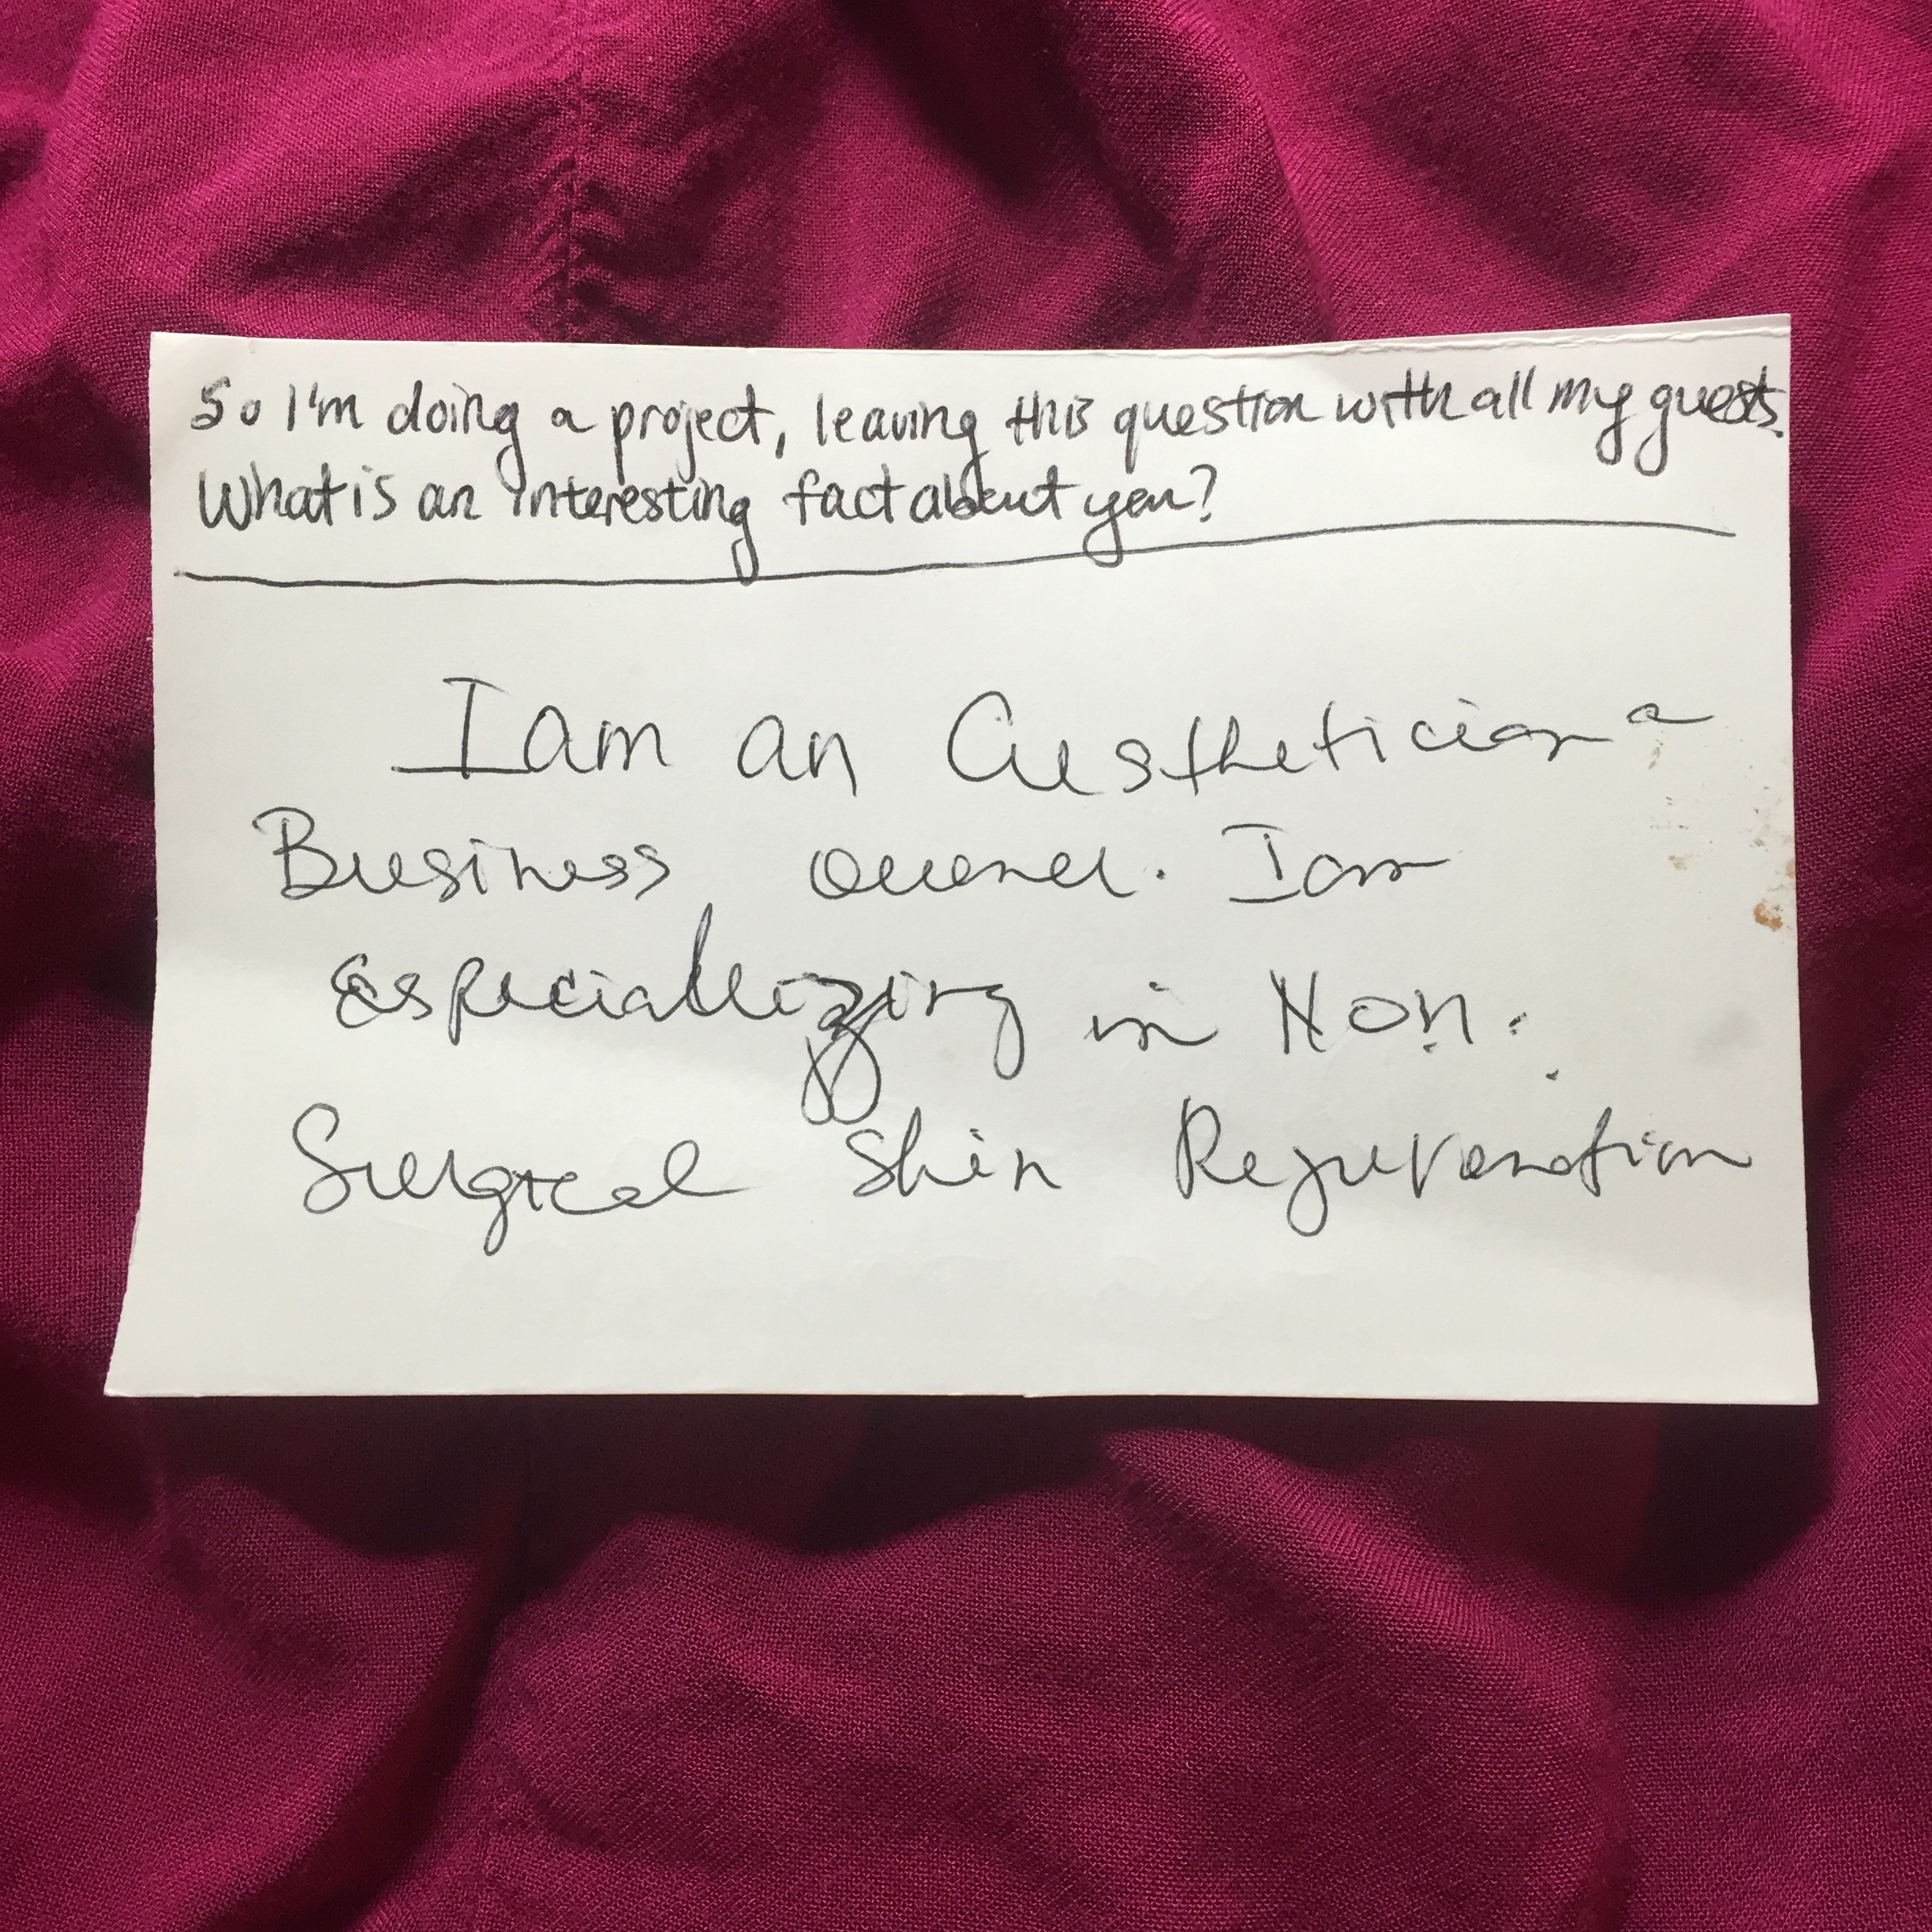 So I'm doing a project, leaving this question with all my guests.
What is an interesting fact about you?
I am an Aesthetician a
Business owner. I am
Especiallizing in Non.
Surgical Skin Rejuvenation